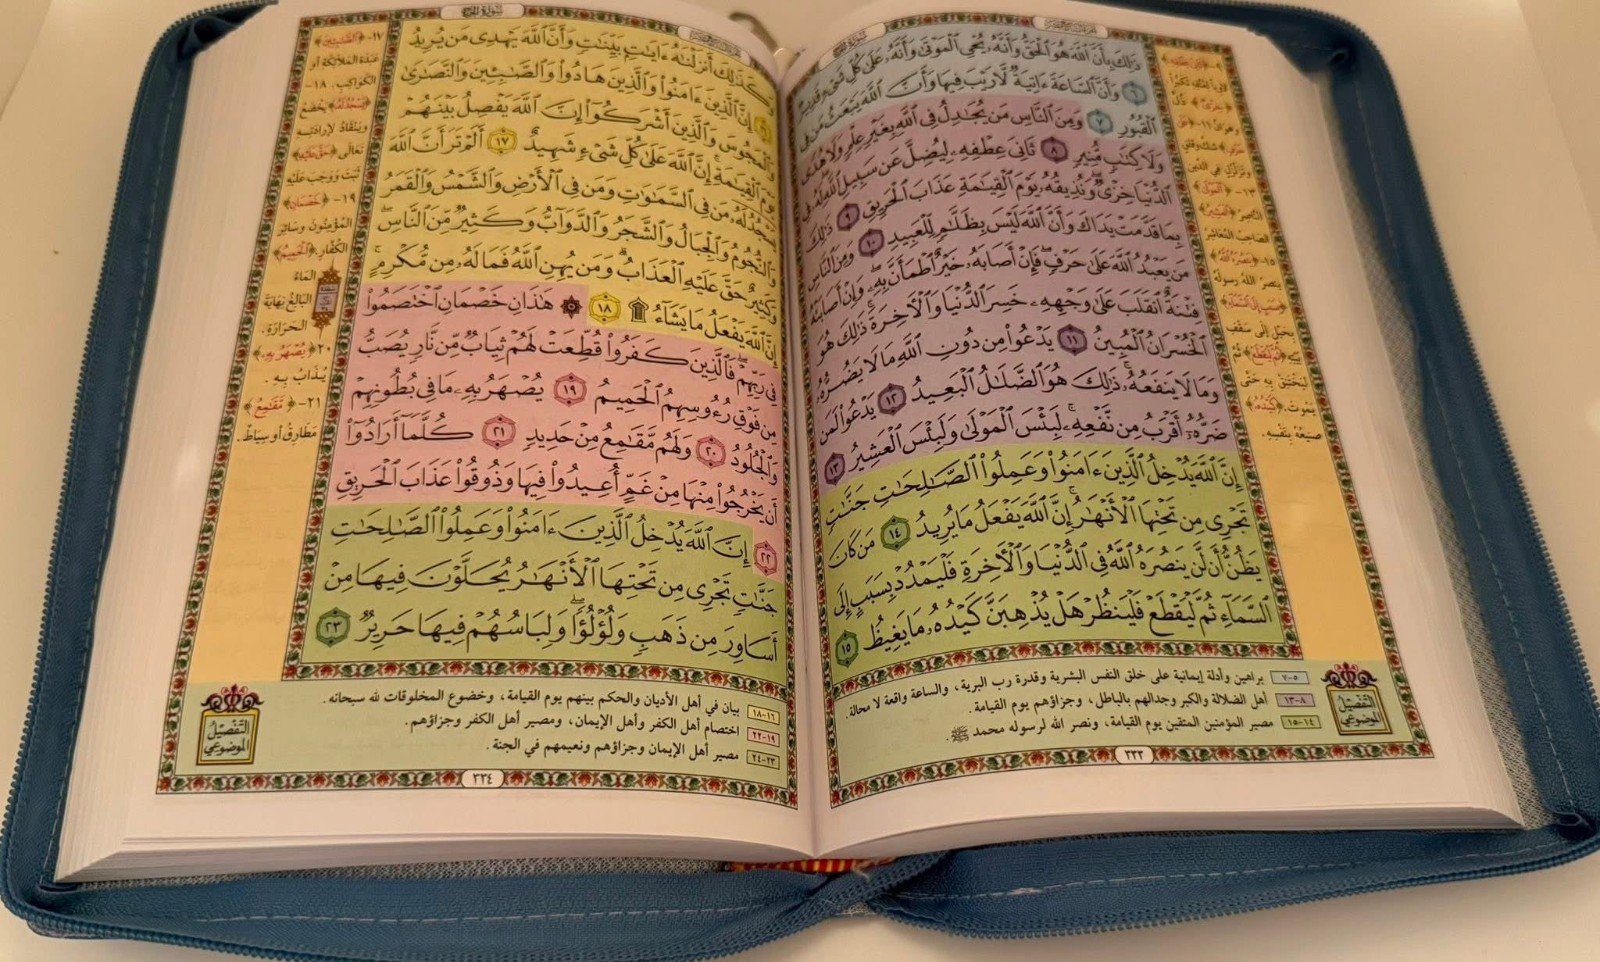 سُورَةُ الحَجّ
ذَٰلِكَ بِأَنَّ ٱللَّهَ هُوَ ٱلْحَقُّ وَأَنَّهُۥ يُحْىِ ٱلْمَوْتَىٰ وَأَنَّهُۥ عَلَىٰ كُلِّ شَىْءٍ قَدِيرٌ
٦ وَأَنَّ ٱلسَّاعَةَ ءَاتِيَةٌ لَّا رَيْبَ فِيهَا وَأَنَّ ٱللَّهَ يَبْعَثُ مَن فِى
ٱلْقُبُورِ ٧ وَمِنَ ٱلنَّاسِ مَن يُجَٰدِلُ فِى ٱللَّهِ بِغَيْرِ عِلْمٍ وَلَا هُدًى
وَلَا كِتَٰبٍ مُّنِيرٍ ٨ ثَانِىَ عِطْفِهِۦ لِيُضِلَّ عَن سَبِيلِ ٱللَّهِ لَهُۥ فِى
ٱلدُّنْيَا خِزْىٌ وَنُذِيقُهُۥ يَوْمَ ٱلْقِيَٰمَةِ عَذَابَ ٱلْحَرِيقِ ٩ ذَٰلِكَ
بِمَا قَدَّمَتْ يَدَاكَ وَأَنَّ ٱللَّهَ لَيْسَ بِظَلَّٰمٍ لِّلْعَبِيدِ ١٠ وَمِنَ ٱلنَّاسِ
مَن يَعْبُدُ ٱللَّهَ عَلَىٰ حَرْفٍ فَإِنْ أَصَابَهُۥ خَيْرٌ ٱطْمَأَنَّ بِهِۦ وَإِنْ أَصَابَتْهُ
فِتْنَةٌ ٱنقَلَبَ عَلَىٰ وَجْهِهِۦ خَسِرَ ٱلدُّنْيَا وَٱلْءَاخِرَةَ ذَٰلِكَ هُوَ
ٱلْخُسْرَانُ ٱلْمُبِينُ ١١ يَدْعُوا۟ مِن دُونِ ٱللَّهِ مَا لَا يَضُرُّهُۥ
وَمَا لَا يَنفَعُهُۥ ذَٰلِكَ هُوَ ٱلضَّلَٰلُ ٱلْبَعِيدُ ١٢ يَدْعُوا۟ لَمَن
ضَرُّهُۥٓ أَقْرَبُ مِن نَّفْعِهِۦ لَبِئْسَ ٱلْمَوْلَىٰ وَلَبِئْسَ ٱلْعَشِيرُ ١٣
إِنَّ ٱللَّهَ يُدْخِلُ ٱلَّذِينَ ءَامَنُوا۟ وَعَمِلُوا۟ ٱلصَّٰلِحَٰتِ جَنَّٰتٍ
تَجْرِى مِن تَحْتِهَا ٱلْأَنْهَٰرُ إِنَّ ٱللَّهَ يَفْعَلُ مَا يُرِيدُ ١٤ مَن كَانَ
يَظُنُّ أَن لَّن يَنصُرَهُ ٱللَّهُ فِى ٱلدُّنْيَا وَٱلْءَاخِرَةِ فَلْيَمْدُدْ بِسَبَبٍ إِلَى
ٱلسَّمَآءِ ثُمَّ لْيَقْطَعْ فَلْيَنظُرْ هَلْ يُذْهِبَنَّ كَيْدُهُۥ مَا يَغِيظُ ١٥
١٣- ﴿الْمَوْلَى﴾
الناصر. ﴿الْعَشِيرُ﴾
الصاحب المعاشر
١٥- ﴿يَنصُرَهُ اللَّهُ﴾
ينصر الله رسوله
﴿بِسَبَبٍ إِلَى السَّمَاءِ﴾
بحبل إلى سقف
بيته ﴿لْيَقْطَعْ﴾ ثم
ليختنق به حتى
يموت. ﴿كَيْدُهُ﴾
صنيعه بنفسه.
التَّفْصِيلُ
المَوْضُوعِي
٥-٧ براهين وأدلة إيمانية على خلق النفس البشرية وقدرة رب البرية، والساعة واقعة لا محالة.
٨-١٣ أهل الضلالة والكبر وجدالهم بالباطل، وجزاؤهم يوم القيامة.
١٤-١٥ مصير المؤمنين المتقين يوم القيامة، ونصر الله لرسوله محمد ﷺ.
٣٣٣
سُورَةُ الحَجّ
وَكَذَٰلِكَ أَنزَلْنَٰهُ ءَايَٰتٍۭ بَيِّنَٰتٍ وَأَنَّ ٱللَّهَ يَهْدِى مَن يُرِيدُ
١٦ إِنَّ ٱلَّذِينَ ءَامَنُوا۟ وَٱلَّذِينَ هَادُوا۟ وَٱلصَّٰبِـِٔينَ وَٱلنَّصَٰرَىٰ
وَٱلْمَجُوسَ وَٱلَّذِينَ أَشْرَكُوٓا۟ إِنَّ ٱللَّهَ يَفْصِلُ بَيْنَهُمْ
يَوْمَ ٱلْقِيَٰمَةِ إِنَّ ٱللَّهَ عَلَىٰ كُلِّ شَىْءٍ شَهِيدٌ ١٧ أَلَمْ تَرَ أَنَّ ٱللَّهَ
يَسْجُدُ لَهُۥ مَن فِى ٱلسَّمَٰوَٰتِ وَمَن فِى ٱلْأَرْضِ وَٱلشَّمْسُ وَٱلْقَمَرُ
وَٱلنُّجُومُ وَٱلْجِبَالُ وَٱلشَّجَرُ وَٱلدَّوَآبُّ وَكَثِيرٌ مِّنَ ٱلنَّاسِ
وَكَثِيرٌ حَقَّ عَلَيْهِ ٱلْعَذَابُ وَمَن يُهِنِ ٱللَّهُ فَمَا لَهُۥ مِن مُّكْرِمٍ
إِنَّ ٱللَّهَ يَفْعَلُ مَا يَشَآءُ ۩ ١٨ ۞ هَٰذَانِ خَصْمَانِ ٱخْتَصَمُوا۟
فِى رَبِّهِمْ فَٱلَّذِينَ كَفَرُوا۟ قُطِّعَتْ لَهُمْ ثِيَابٌ مِّن نَّارٍ يُصَبُّ
مِن فَوْقِ رُءُوسِهِمُ ٱلْحَمِيمُ ١٩ يُصْهَرُ بِهِۦ مَا فِى بُطُونِهِمْ
وَٱلْجُلُودُ ٢٠ وَلَهُم مَّقَٰمِعُ مِنْ حَدِيدٍ ٢١ كُلَّمَآ أَرَادُوٓا۟
أَن يَخْرُجُوا۟ مِنْهَا مِنْ غَمٍّ أُعِيدُوا۟ فِيهَا وَذُوقُوا۟ عَذَابَ ٱلْحَرِيقِ
٢٢ إِنَّ ٱللَّهَ يُدْخِلُ ٱلَّذِينَ ءَامَنُوا۟ وَعَمِلُوا۟ ٱلصَّٰلِحَٰتِ
جَنَّٰتٍ تَجْرِى مِن تَحْتِهَا ٱلْأَنْهَٰرُ يُحَلَّوْنَ فِيهَا مِنْ
أَسَاوِرَ مِن ذَهَبٍ وَلُؤْلُؤًا وَلِبَاسُهُمْ فِيهَا حَرِيرٌ ٢٣
١٧- ﴿الصَّابِئِينَ﴾
عبدة الملائكة أو
الكواكب. ١٨-
﴿يَسْجُدُ لَهُ﴾ يخضع
وينقاد لإرادته
تعالى ﴿حَقَّ عَلَيْهِ﴾
ثبت ووجب عليه
١٩- ﴿خَصْمَانِ﴾
المؤمنون وسائر
الكفار. ﴿الْحَمِيمُ﴾
الماء
البالغ نهاية
الحرارة.
٢٠- ﴿يُصْهَرُ بِهِ﴾
يذاب به.
٢١- ﴿مَّقَامِعُ﴾
مطارق أو سياط.
التَّفْصِيلُ
المَوْضُوعِي
١٦-١٨ بيان في أهل الأديان والحكم بينهم يوم القيامة، وخضوع المخلوقات لله سبحانه.
١٩-٢٢ اختصام أهل الكفر وأهل الإيمان، ومصير أهل الكفر وجزاؤهم.
٢٣-٢٤ مصير أهل الإيمان وجزاؤهم ونعيمهم في الجنة.
٣٣٤